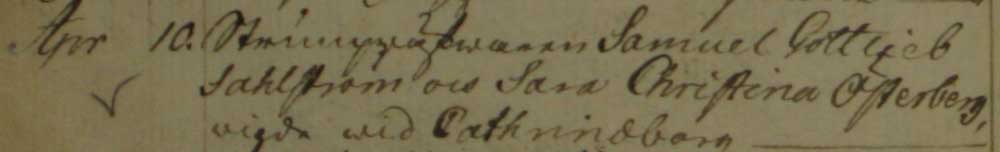 Apr 10. Strumpwäfwaren Samuel Gottlieb
Sahlstrom ock Sara Christina Österberg,
vigde wid Cathrinæborg